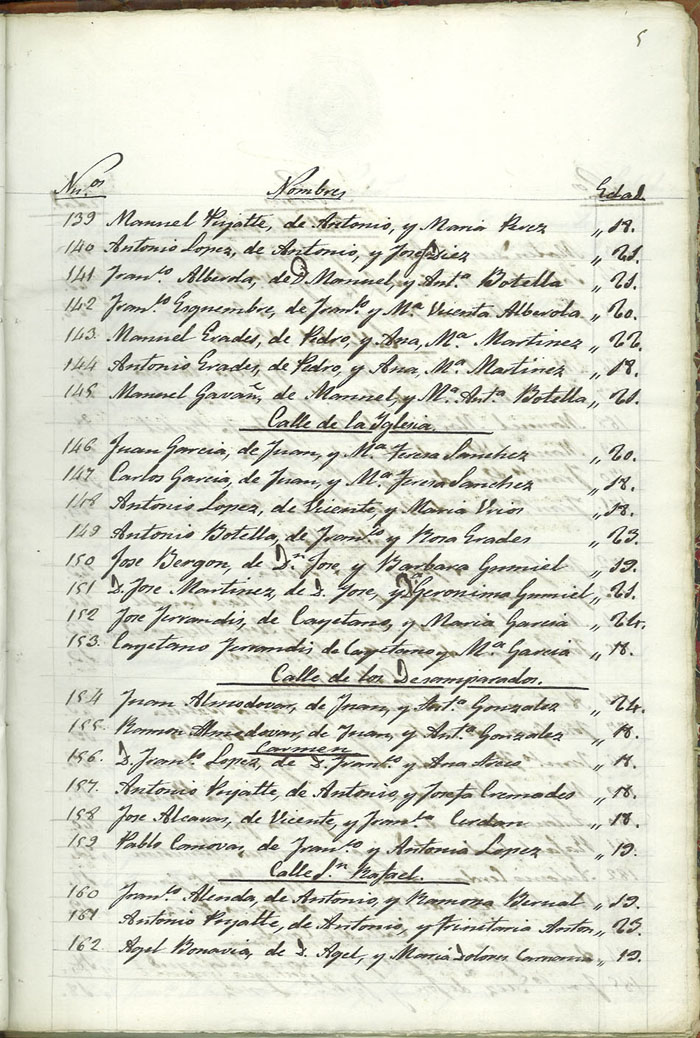 5
Nu.os Nombres Edad
139 Manuel Pujalte, de Antonio, y Maria Perez „ 18.
140 Antonio Lopez, de Antonio, y Josefa Diez „ 21.
141 Fran.co Alberola, de D. Manuel, y Ant.a Botella „ 21.
142 Fran.co Esquembre, de Fran.co y M.a Vicenta Alberola „ 20.
143. Manuel Erades, de Pedro, y Ana, M.a Martinez „ 22.
144 Antonio Erades, de Pedro, y Ana, M.a Martinez „ 18.
145. Manuel de Manuel, y M.a Ant.a Botella „ 21.
Calle de la Yglesia.
146 Juan Garcia, de Juan, y M.a Teresa Sanchez „ 20.
147 Carlos Garcia, de Juan, y M.a Teresa Sanchez „ 18.
148 Antonio Lopez, de Vicente, y Maria Vrios „ 18.
149 Antonio Botella, de Fran.co y Rosa Erades „ 23.
150 Jose Bergon, de D.n Jose, y Barbara Gumiel „ 19.
151 D. Jose Martinez, de D. Jose, y D.a Geronima Gumiel „ 21.
152 Jose Ferrandis, de Cayetano, y Maria Garcia „ 24.
153. Cayetano Ferrandis de Cayetano y M.a Garcia „ 18.
Calle de los Desamparados.
154 Juan Almodovar, de Juan, y Ant.a Gonzalez „ 24.
155. Ramon Almodovar, de Juan, y Ant.a Gonzalez „ 18.
Carmen
156. D. Fran.co Lopez, de D. Fran.co y Ana „ 18.
157. Antonio Pujalte, de Antonio, y Josefa Cremades „ 18.
158 Jose Alcaraz, de Vicente, y Fran.ca Cerdan „ 18.
159 Pablo Canovas, de Fran.co y Antonia Lopez „ 19.
Calle S.n Rafael.
160 Fran.co Alenda, de Antonio, y Ramona Bernal „ 19.
161 Antonio Pujalte, de Antonio, y Trinitaria Anton „ 23.
162 Agel Bonavia, de D. Agel, y Maria Dolores „ 19.